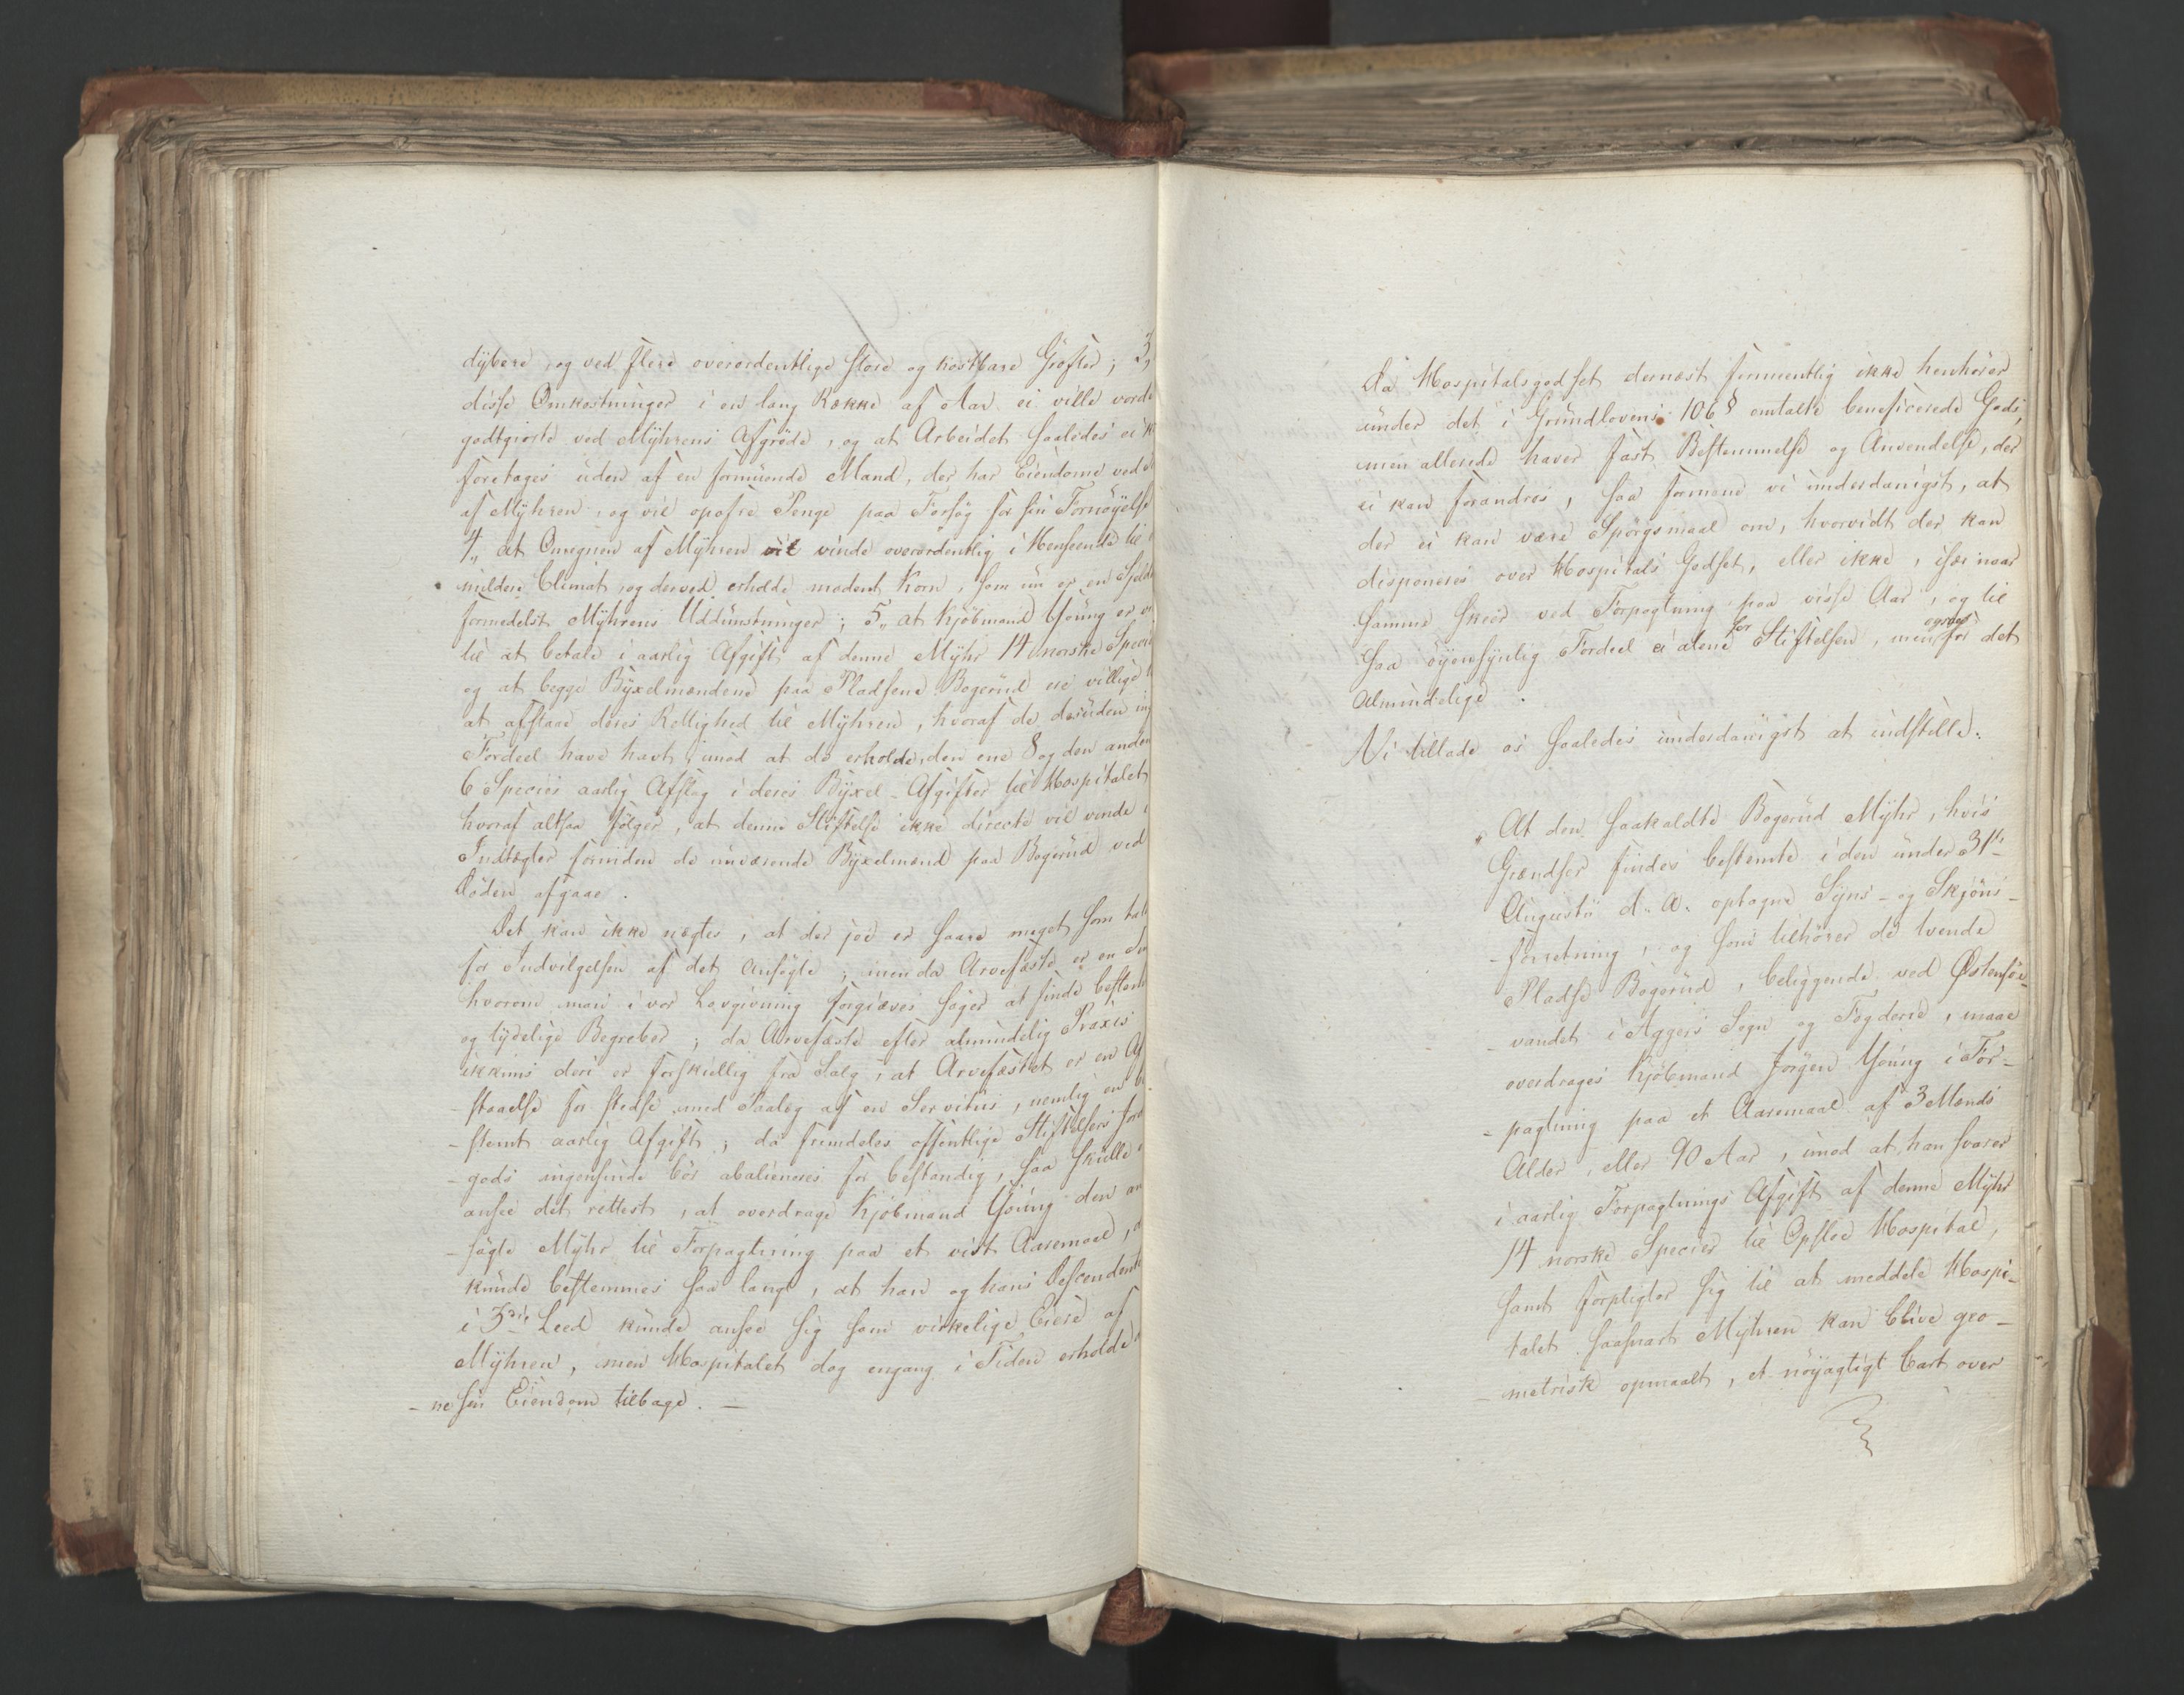 dybere, og ved flere overordentlige store og kostbare Grøfter; 3,,
disse Omkostninger i en lang Række af Aar ei ville vorde
godtgiorte ved Myhrens Afgrøde, og at Arbeidet saaledes ei k
foretages uden af en formuende Mand, der har Eiendome ved
af Myhren, og vil opofre Penge paa Forsøg for sin Fornöyelse
4,, at Omegnen af Myhren vil vinde overordentlig i Henseende til
mildere Climat, og derved erholde modent Korn, som nu er en Sjeld
formedelst Myhrens Uddunstninger; 5,, at Kjöbmand Young er
til at betale i aarlig Afgift af denne Myhr 14 norske Speci
og at begge Byxelmændene paa Pladsene Bogerud ere villige
at afstaae deres Rettighed til Myhren, hvoraf de desuden in
Fordeel have havt, imod at de erholde, den ene 8 og den anden
6 Species aarlig Afslag i deres Byxel-Afgifter til Hospitalet
hvoraf altsaa følger, at denne Stiftelse ikke directe vil vinde i
Indtægter forinden de nuværende Byxelmænd paa Bogerud ved
Döden afgaae.
Det kan ikke nægtes, at der jo er saare meget som tal
for Indvilgelsen af det Ansøgte; men da Arvefæste er en
hvorom man i vor Lovgivning forgiæves søger at finde bestem
og tydelige Begreber; da Arvefæste efter almindelig Praxis
ikkuns deri er forskiellig fra Salg, at Arvefæstet er en Af
-staaelse for stedse med Paalæg af en Servitus, nemlig en be
-stemt aarlig Afgift; da fremdeles offentlige Stiftelsers Jord
-gods ingensinde bör abalieneres for bestandig, saa skulle
ansee det rettest, at overdrage Kjöbmand Young den an
-søgte Myhr til Forpagtning paa et vist Aaremaal,
kunde bestemmes saa langt, at han og hans Descendente
i 3die Leed kunde ansee sig som virkelige Eiere af
Myhren, men Hospitalet dog engang i Tiden erholde
-ne sin Eiendom tilbage. —
Da Hospitalsgodset dernæst formentlig ikke henhörer
under det i Grundlovens 106 § omtalte beneficerede Gods,
men allerede haver fast Bestemmelse og Anvendelse, der
ei kan forandres, saa formene vi underdanigst, at
der ei kan være Spörgsmaal om, hvorvidt der kan
disponeres over Hospitals Godset, eller ikke, især naar
samme skeer ved Forpagtning paa visse Aar, og til
saa öyensynlig Fordeel ei alene for Stiftelsen, men ogsaa for det
Almindelige.
Vi tillade os saaledes underdanigst at indstille:
„At den saakaldte Bogerud Myhr, hvis
Grændser findes bestemte i den under 31te
Augustii d. A. optagne Syns- og Skjöns-
-forretning, og som tilhörer de tvende
Pladse Bogerud, beliggende ved Østensöe-
-vandet i Aggers Sogn og Fogderie, maae
overdrages Kjöbmand Jörgen Young i For-
-pagtning paa et Aaremaal af 3 Mands
Alder, eller 90 Aar, imod at han svarer
i aarlig Forpagtnings Afgift af denne Myhr
14 norske Species til Opsloe Hospital,
samt forpligter sig til at meddele Hospi-
talet saasnart Myhren kan blive geo-
-metrisk opmaalt, et nöyagtigt Cart over